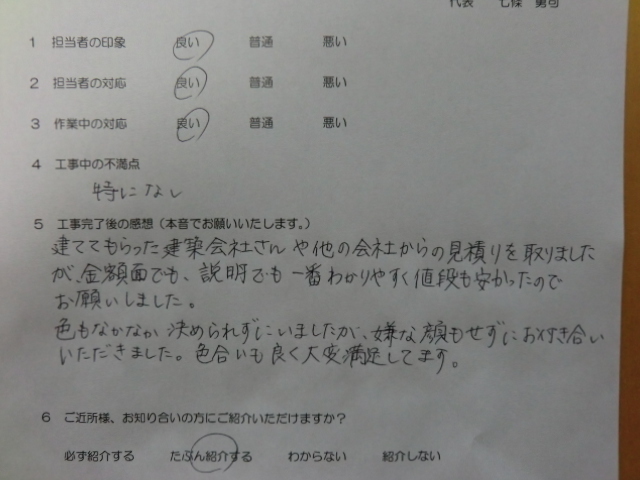 代表 七條 勇司
1 担当者の印象 良い 普通 悪い
2 担当者の対応 良い 普通 悪い
3 作業中の対応 良い 普通 悪い
4 工事中の不満点
特になし
5 工事完了後の感想(本音でお願いいたします。)
建ててもらった建築会社さんや他の会社からの見積りを取りました
が、金額面でも、説明でも一番わかりやすく値段も安かったので
お願いしました。
色もなかなか決められずにいましたが、嫌な顔もせずにお付き合い
いただきました。色合いも良く大変満足してます。
6 ご近所様、お知り合いの方にご紹介いただけますか?
必ず紹介する たぶん紹介する わからない 紹介しない